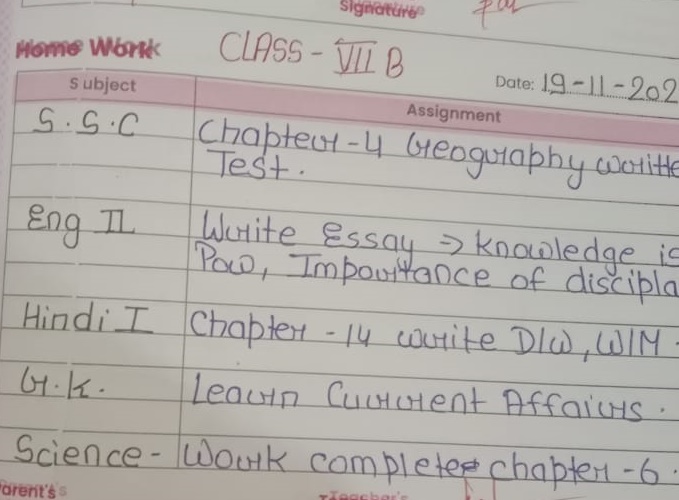 Signature
Home Work CLASS - VII B
Date: 19-11-202
Subject Assignment
S.S.C Chapter-4 Geography writte
Test.
Eng II Write Essay → knowledge is
Pow, Importance of discipla
Hindi I Chapter - 14 write D/W, W/M.
G.K. Learn Current Affairs.
Science - Work complete chapter - 6.
arent's Teacher's